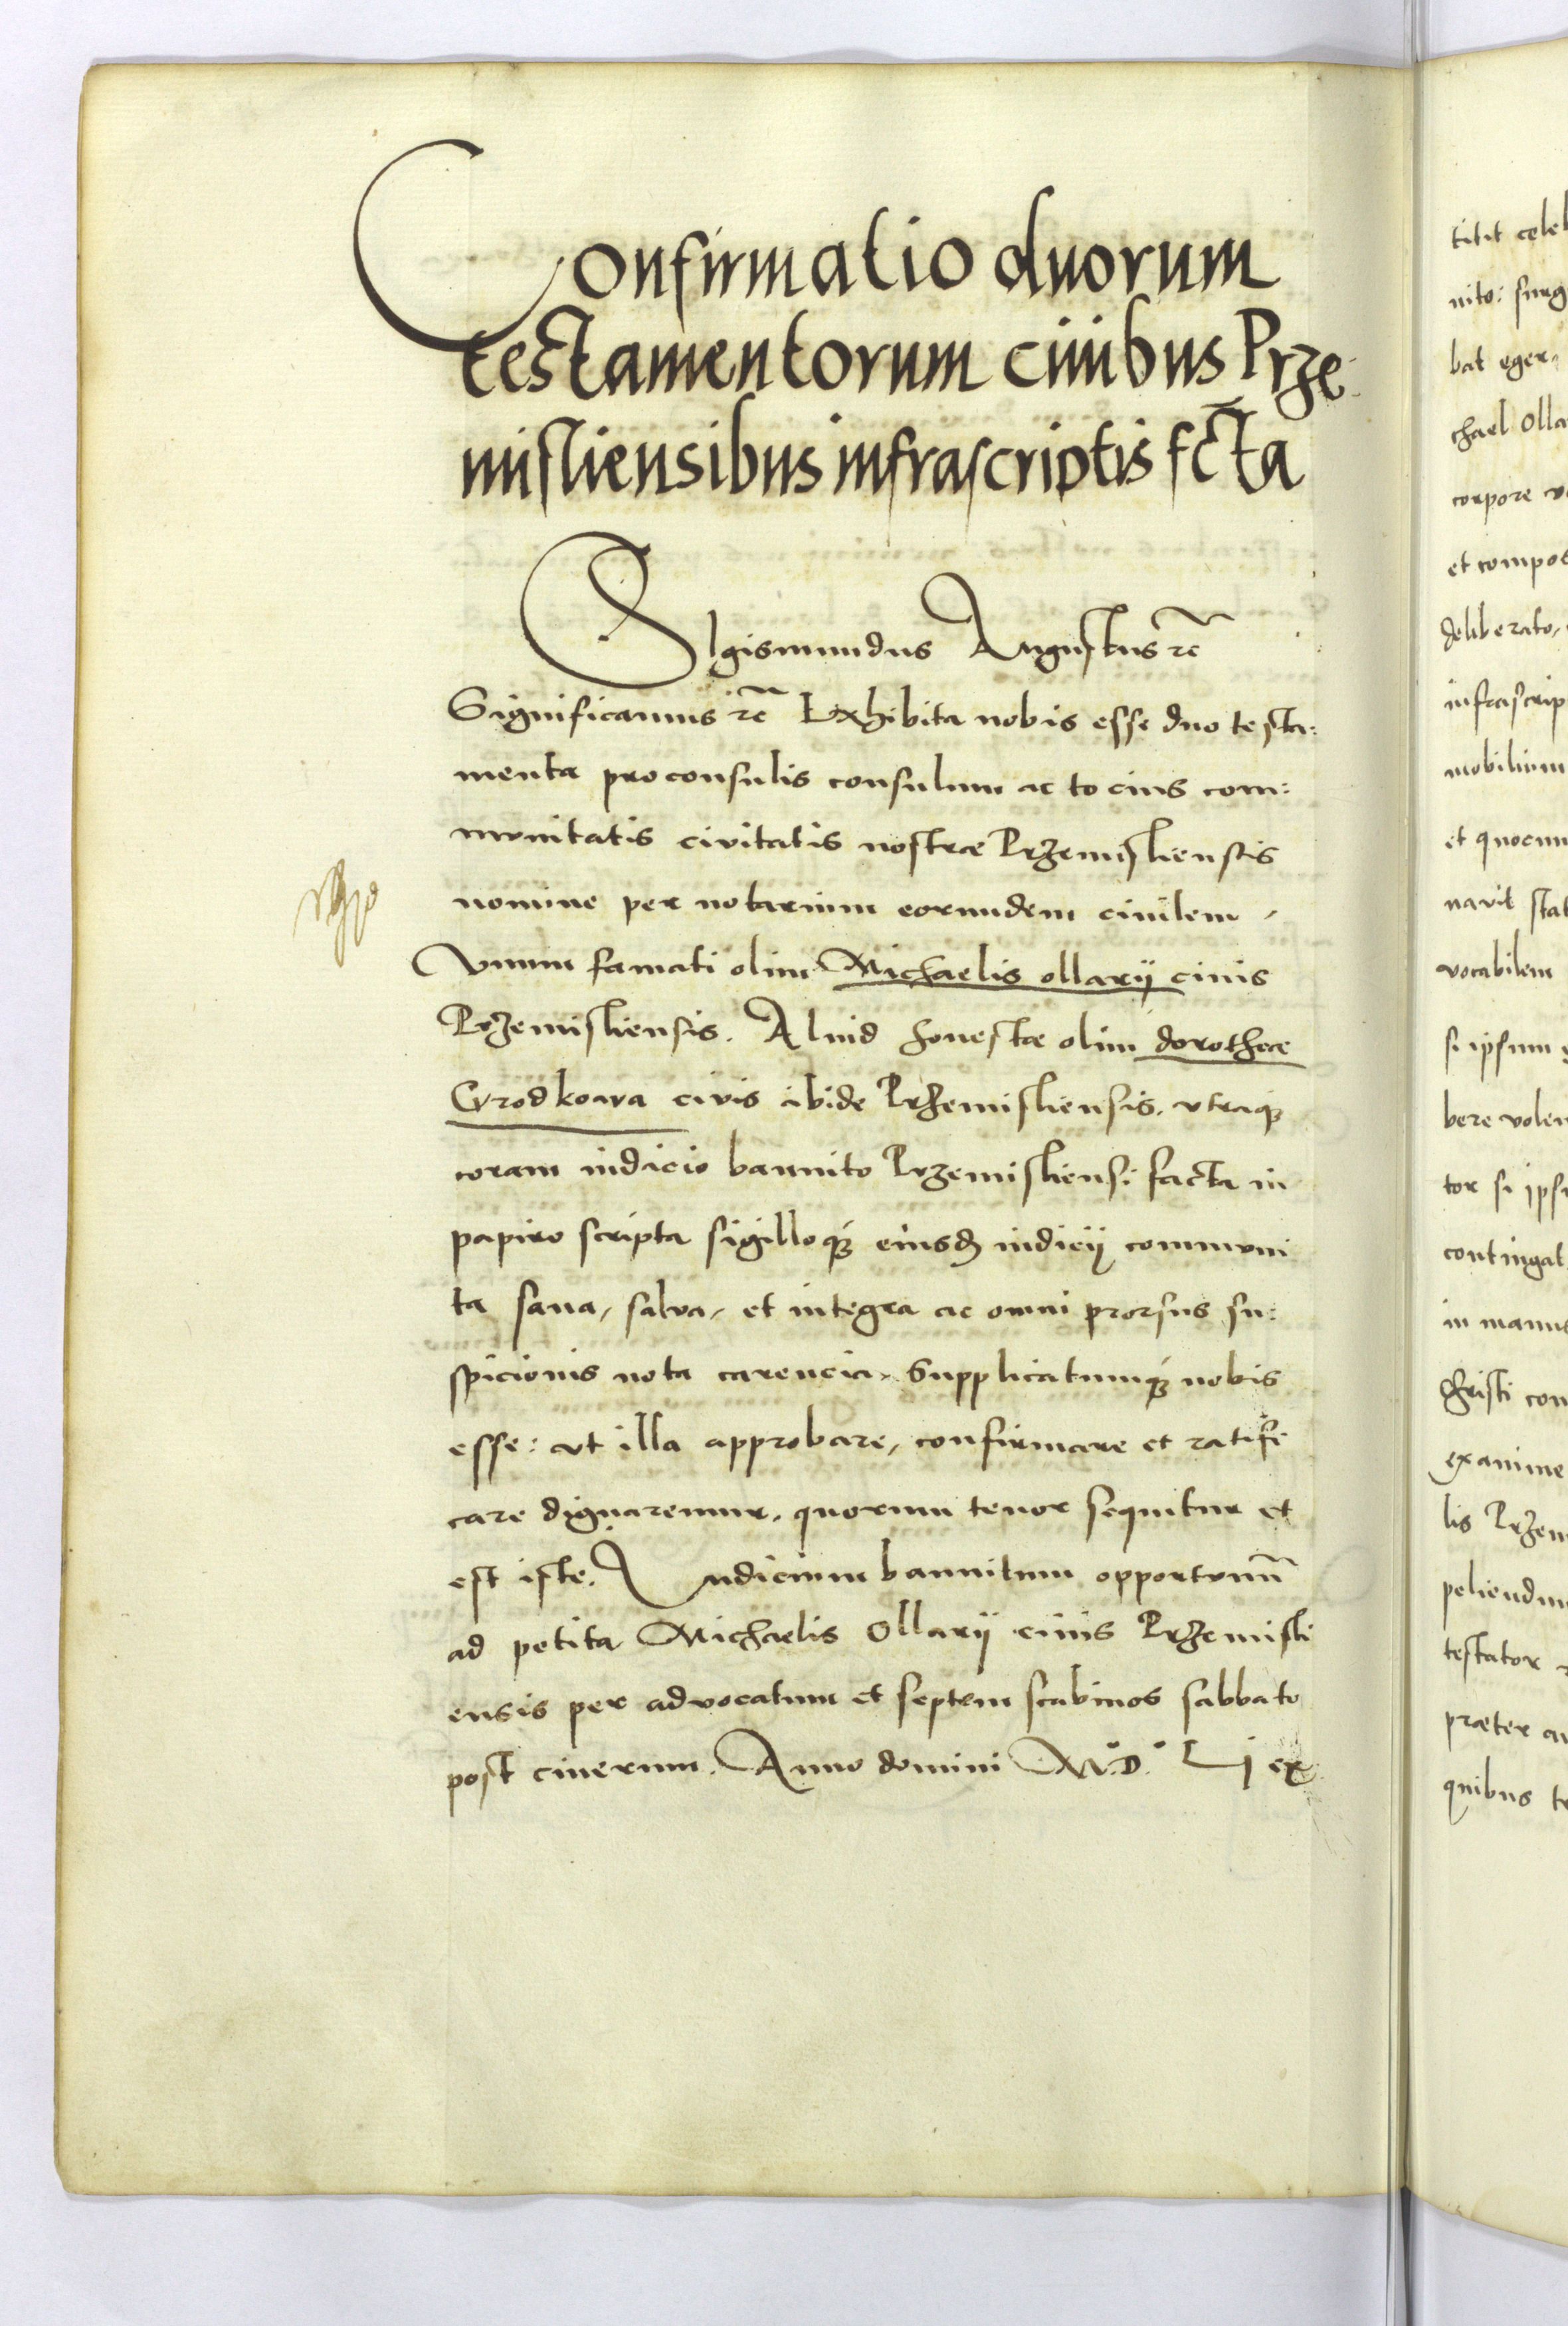 Confirmatio duorum
testamentorum civibus Prze:
misliensibus infrascriptis fcta
SIgismundus Augustus rc̄
Significamus rc̄ Exhibita nobis esse duo testa:
menta proconsulis consulum ac tocius com:
munitatis civitatis nostrae Przemisliensis
nomine per notarium eorundem civilem,
Vnum famati olim Michaelis ollarij civis
Przemisliensis. Aliud honestae olim dorotheae
Grodkowa civis ibide Przemisliensis. vtraqȝ
coram iudicio bannito Przemisliensi facta in
papiro scripta sigilloqȝ eiusd iudicij communi
ta sana, salva, et integra ac omni prorsus su:
spicionis nota carencia, Supplicatumqȝ nobis
esse: vt illa approbare, confirmare et ratifi
care dignaremur, quorum tenor sequitur et
est iste. Iudicium bannitum opportunū
ad petita Michaelis Ollarij civis Przemisli
ensis per advocatum et septem scabinos sabbato
post cinerum. Anno domini M°. D.° Lj ex
titit cele
nito: surg
bat eger,
chael Olla
corpore
et compos
deliberato,
infrascrip
mobilium
et quocun
navit stat
vocabilem
si ipsum
bere volen
tor si ips
contingat
in manus
Christi con
examine
lis Przem
peliendum
testator
praeter
quibus te